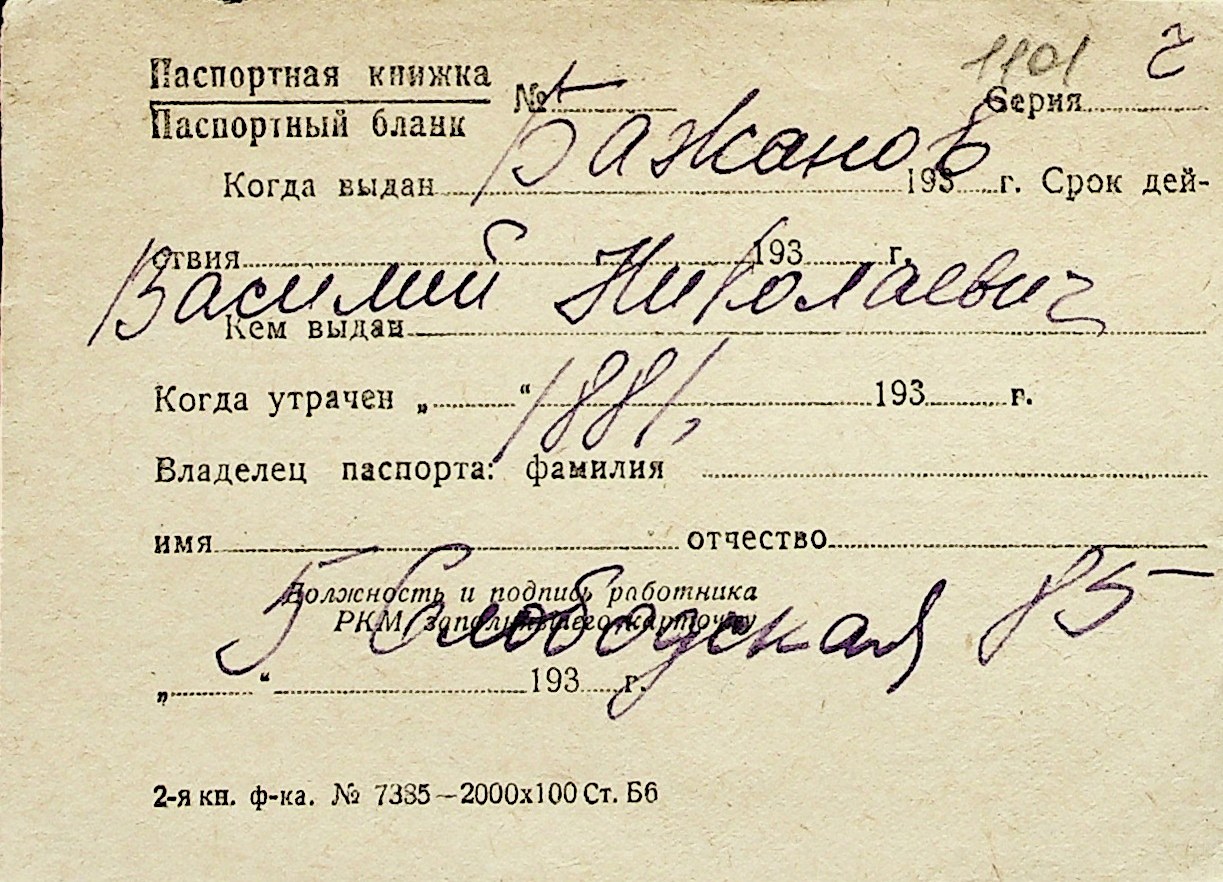 1101 č
Паспортная книжка
Паспортный бланк № Серия
Бажанов
Когда выдан 193 г. Срок дей-
ствия 193 г.
Василий Николаевич
Кем выдан
Когда утрачен „ “ 193 г.
1881
Владелец паспорта: фамилия
имя отчество
Должность и подпись работника
РКМ, заполнившего карточку
Слободская 85
„ “ 193 г.
2-я кн. ф-ка. № 7335—2000х100 Ст. Б6